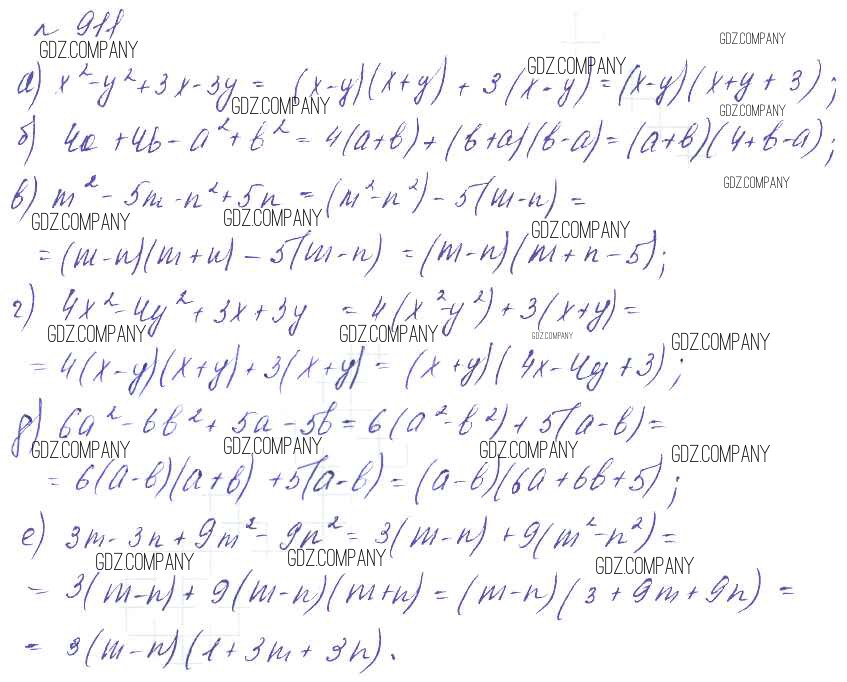 № 911
GDZ.COMPANY
GDZ.COMPANY
GDZ.COMPANY
а) x²-y²+3x-3y = (x-y)(x+y) + 3(x-y) = (x-y)(x+y+3);
GDZ.COMPANY
GDZ.COMPANY
б) 4a+4b-a²+b² = 4(a+b)+(b+a)(b-a) = (a+b)(4+b-a);
GDZ.COMPANY
в) m²-5m-n²+5n = (m²-n²)-5(m-n) =
GDZ.COMPANY
GDZ.COMPANY
GDZ.COMPANY
= (m-n)(m+n)-5(m-n) = (m-n)(m+n-5);
г) 4x²-4y²+3x+3y = 4(x²-y²)+3(x+y) =
GDZ.COMPANY
GDZ.COMPANY
GDZ.COMPANY
GDZ.COMPANY
= 4(x-y)(x+y)+3(x+y) = (x+y)(4x-4y+3);
д) 6a²-6b²+5a-5b = 6(a²-b²)+5(a-b) =
GDZ.COMPANY
GDZ.COMPANY
GDZ.COMPANY
GDZ.COMPANY
= 6(a-b)(a+b)+5(a-b) = (a-b)(6a+6b+5);
е) 3m-3n+9m²-9n² = 3(m-n)+9(m²-n²) =
GDZ.COMPANY
GDZ.COMPANY
GDZ.COMPANY
= 3(m-n)+9(m-n)(m+n) = (m-n)(3+9m+9n) =
= 3(m-n)(1+3m+3n).